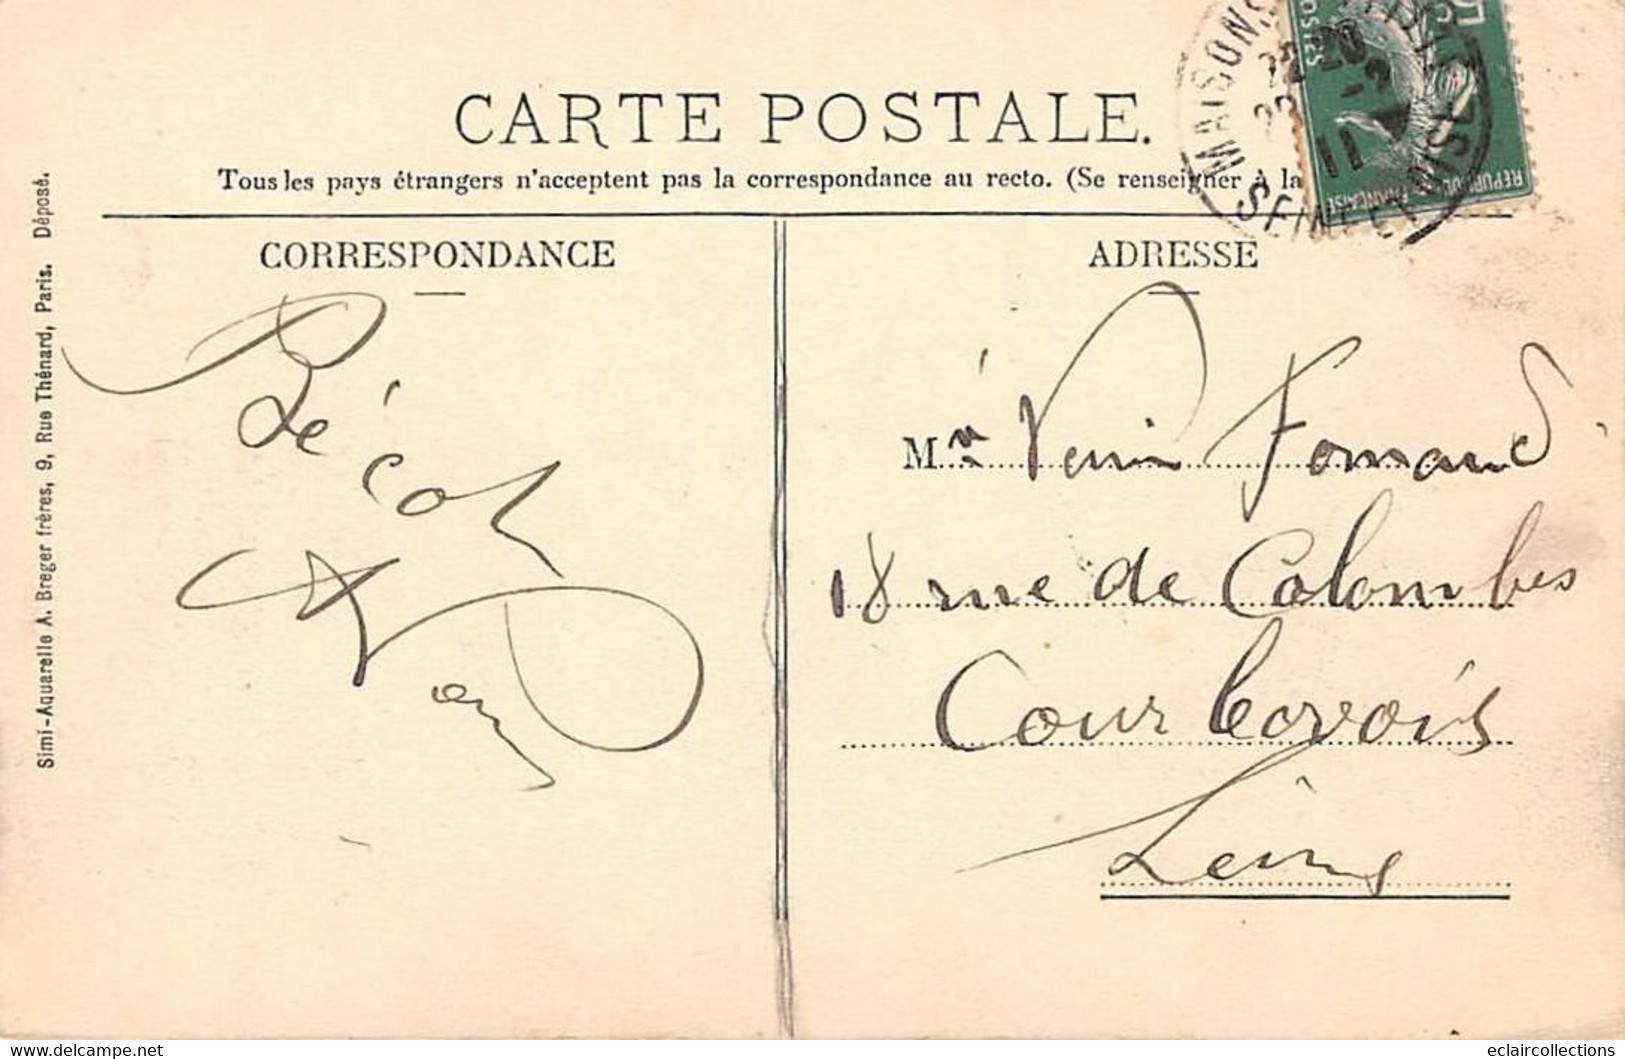 CARTE POSTALE.
Tous les pays étrangers n'acceptent pas la correspondance au recto. (Se renseigner à la
CORRESPONDANCE
ADRESSE
Simi-Aquarelle A. Breger frères, 9, Rue Thénard, Paris. Déposé.
Bécot
Mr
18 rue de Colombes
Courbevois
Seine
MAISONS
SEINE ET OISE
22
11
POSTES
5
REPUBLIQUE FRANÇAISE
Delcampe.net
eclaircollections